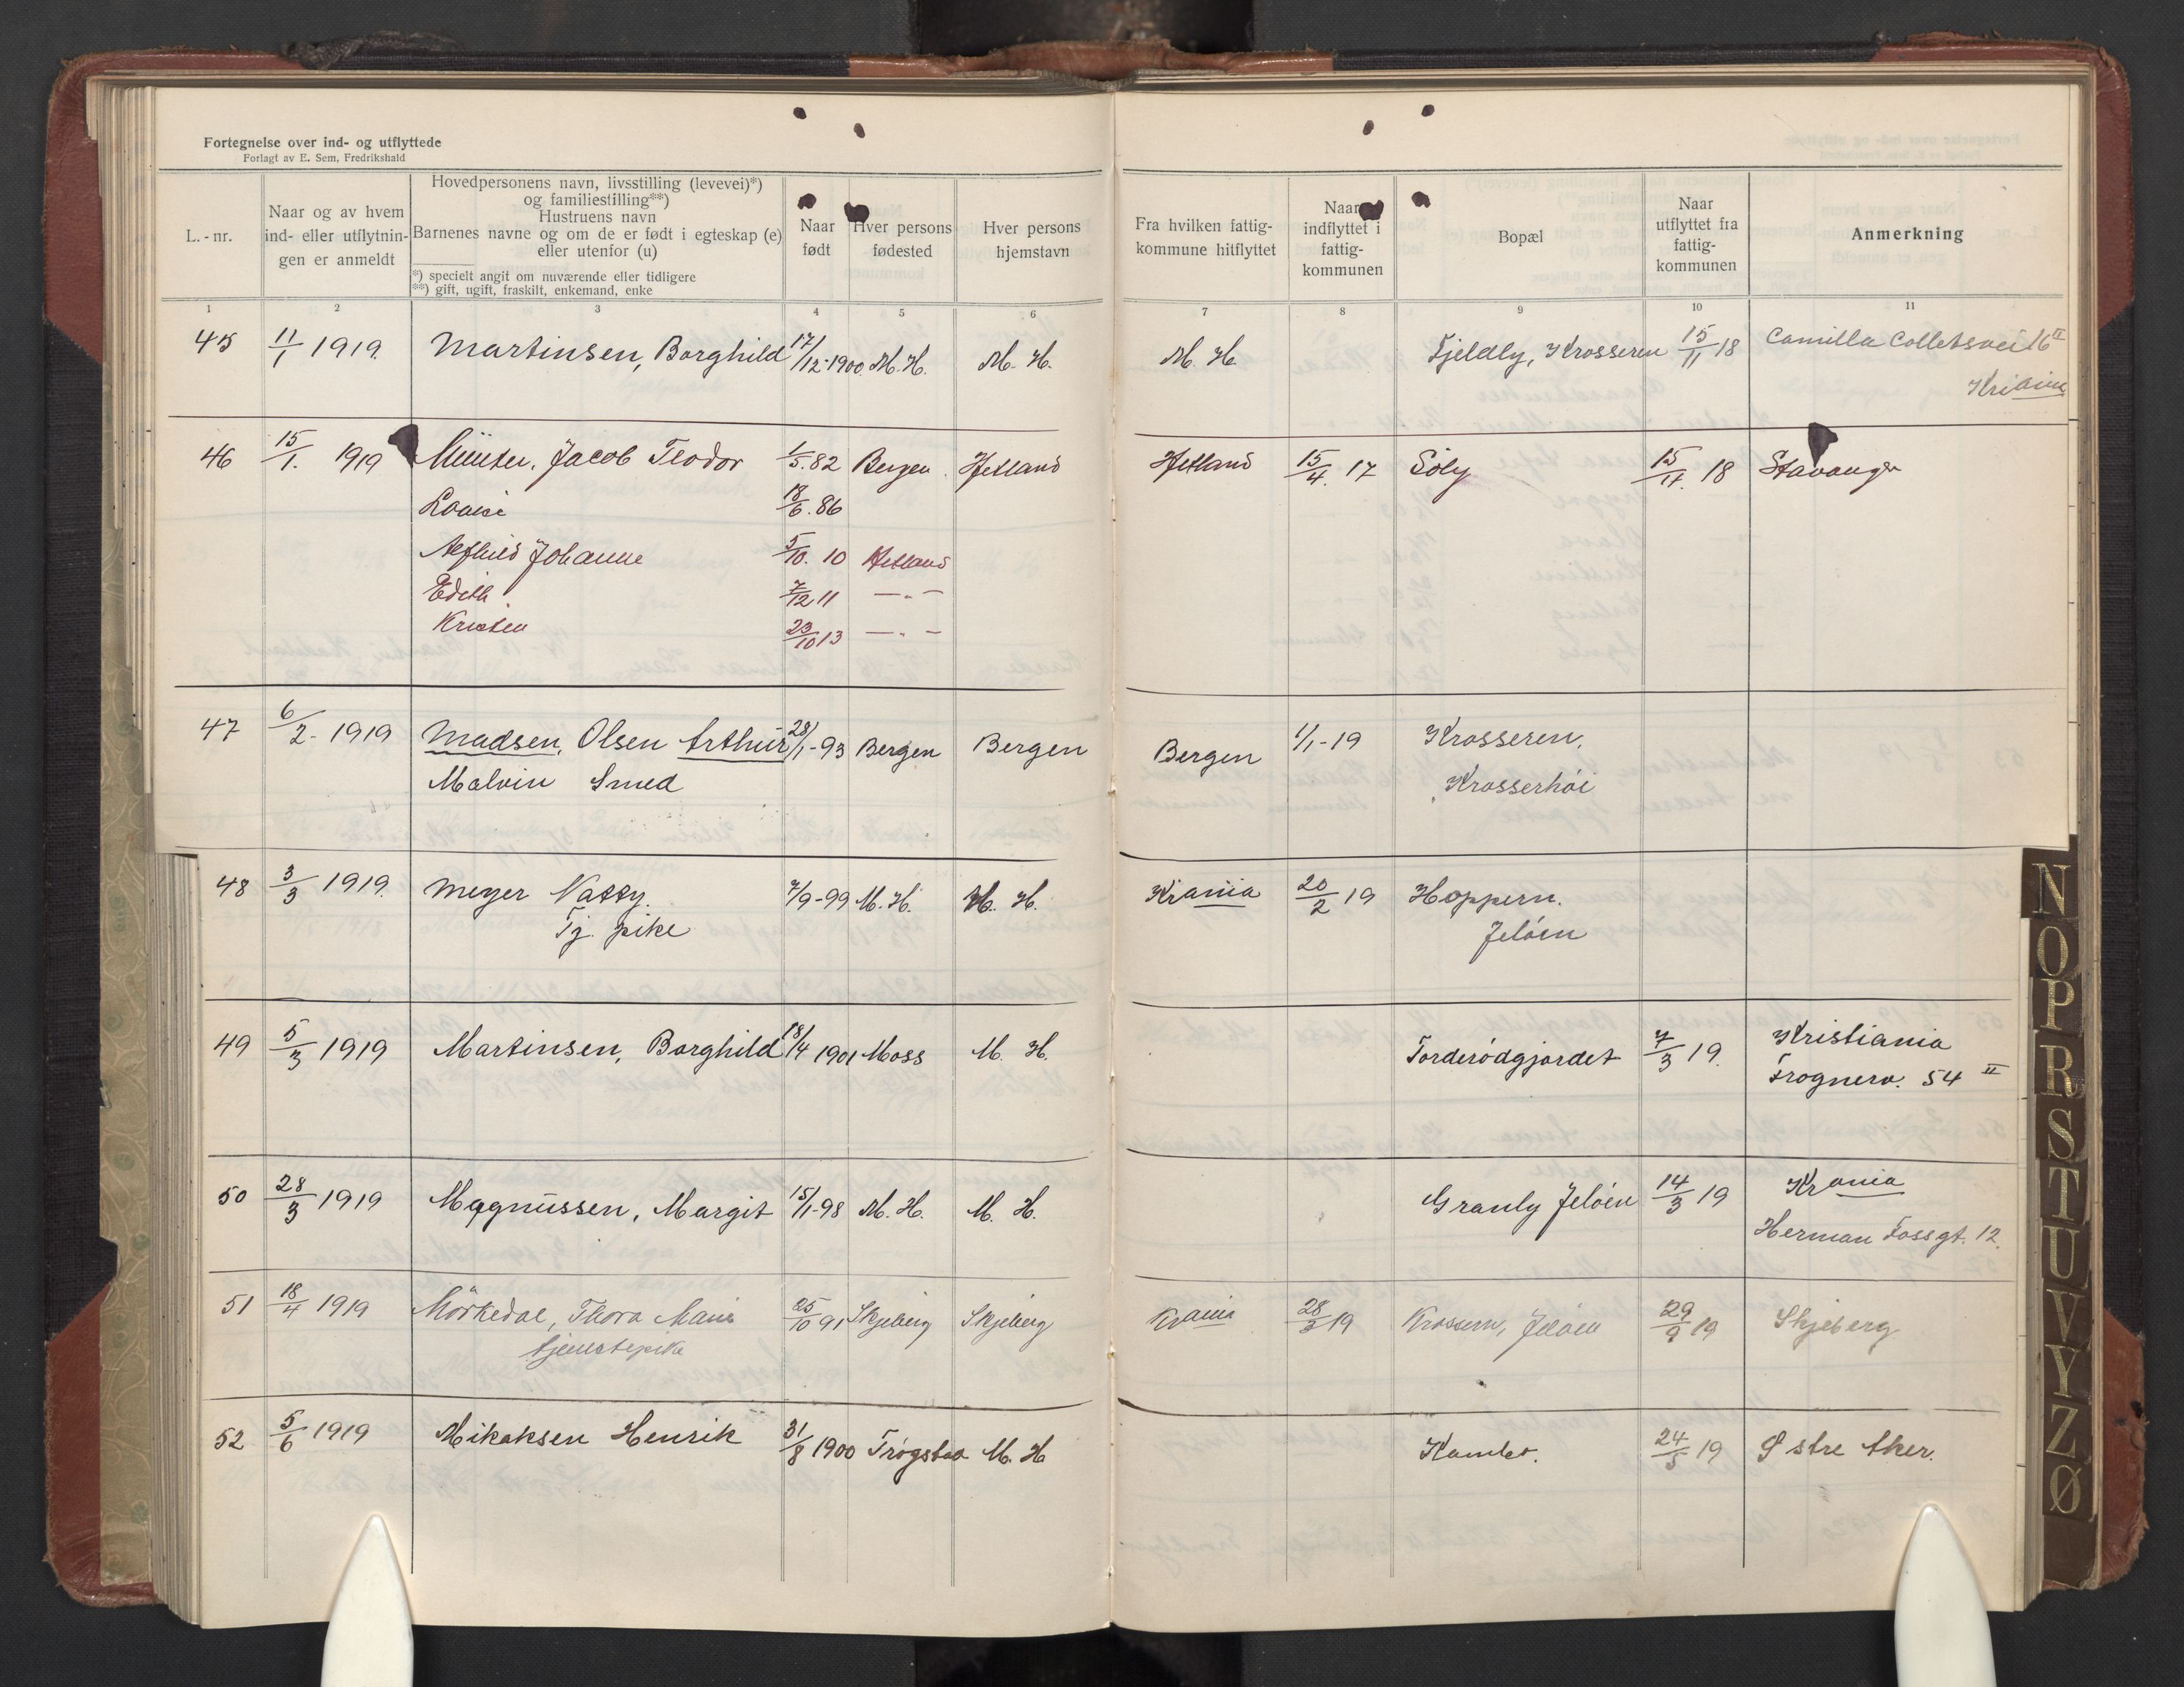 Fortegnelse over ind- og utflyttede
Forlagt av E. Sem, Fredrikshald
L.-nr.
Naar og av hvem
ind- eller utflytnin-
gen er anmeldt
Hovedpersonens navn, livsstilling (levevei)*)
og familiestilling**)
Hustruens navn
Barnenes navne og om de er født i egteskap (e)
eller utenfor (u)
*) specielt angit om nuværende eller tidligere
**) gift, ugift, fraskilt, enkemand, enke
Naar
født
Hver persons
fødested
Hver persons
hjemstavn
Fra hvilken fattig-
kommune hitflyttet
Naar
indflyttet i
fattig-
kommunen
Bopæl
Naar
utflyttet fra
fattig-
kommunen
Anmerkning
1 2 3 4 5 6 7 8 9 10 11
45 11/1 1919. Martinsen, Borghild 17/12-1900. M.H. M.H. M.H. Fjeldly, Krosseren 15/11 18 Camilla Colletsvei 16 II
Kriania
46 15/1. 1919 Jacob Teodor 1/5.82 Bergen Hetland Hetland 15/4. 17 Soly 15/11. 18 Stavanger
Louise 18/6.86
Johanne 5/10. 10 Hetland
Edith 7/12 11 — „ —
Kristen 23/10 13 — „ —
47 6/2- 1919 Madsen, Olsen Arthur 28/1-93 Bergen Bergen Bergen 1/1-19 Krosseren,
Malvin Smed Krosserhöi
48 3/3 1919. Meyer Natty. 7/9-99 M.H. M.H. Kriania 20/2 19 Hoppern.
Tj. pike Jelöen
49 5/3 1919 Martinsen, Borghild 18/4 1901 Moss M. H. Torderödgjordet 7/3 19. Kristiania
Frognerv. 54 II
50 28/3 1919 Magnussen, Margit 15/1-98 M.H. M.H. Granly Jelöen 14/3 19 Krania
Herman Fossgt. 12.
51 18/4 1919 Mörkedal, Thora Marie 25/10 91 Skjeberg Skjeberg Krania 28/3 19 Krossern, Jelöen 29/9 19 Skjeberg
tjenestepike
52 5/6 1919 Mikaksen Henrik 31/8 1900 Trögstad M.H Kambo. 24/5 19 Østre Aker.
N
O
P
R
S
T
U
V
Y
Z
Ø